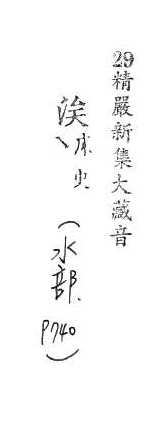 29精嚴新集大藏音
涘
床史
(水部.
P740)